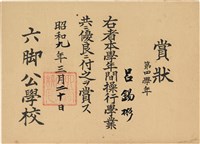 賞狀
第四學年
呂錫彬
右者本學年間操行學業
共ニ優良ニ付之ヲ賞ス
昭和九年三月二十日
六脚公學校